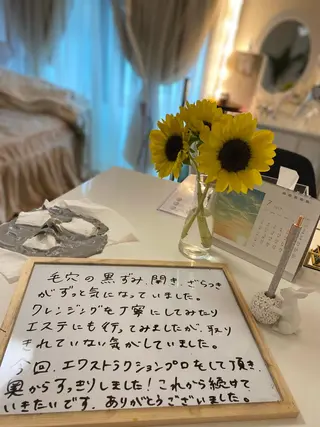 毛穴の黒ずみ、開き、ざらつき
がずっと気になっていました。
クレンジングを丁寧にしてみたり
エステにも行ってみましたが、取り
きれていない気がしていました。
今回、エクストラクションプロをして頂き、
奥からすっきりしました！これから続けて
いきたいです。ありがとうございました。